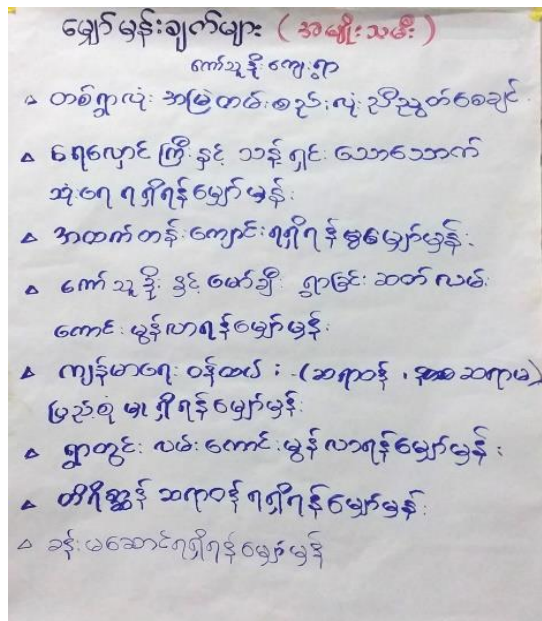 မျှော်မှန်းချက်များ (အမျိုးသမီး)
ကော်သူဒိုး ကျေးရွာ
တစ်ရွာလုံး အမြဲတမ်းစည်းလုံးညီညွတ်စေချင်
ရေလှောင်ကြီးနှင့် သန့်ရှင်းသောသောက်
သုံးရေ ရရှိရန်မျှော်မှန်း
အထက်တန်းကျောင်းရရှိရန်မျှော်မှန်း
ကော်သူဒိုး နှင့် မော်ချီး ရွာခြင်းဆက်လမ်း
ကောင်းမွန်လာရန်မျှော်မှန်း
ကျန်မာရေး ဝန်ထမ်း (ဆရာဝန်၊ ဆရာမ)
ပြည့်စုံမှုရှိရန်မျှော်မှန်း
ရွာတွင်းလမ်းကောင်းမွန်လာရန်မျှော်မှန်း
တိရိစ္ဆာန် ဆရာဝန်ရရှိရန်မျှော်မှန်း
ခန်းမဆောင်ရရှိရန်မျှော်မှန်း